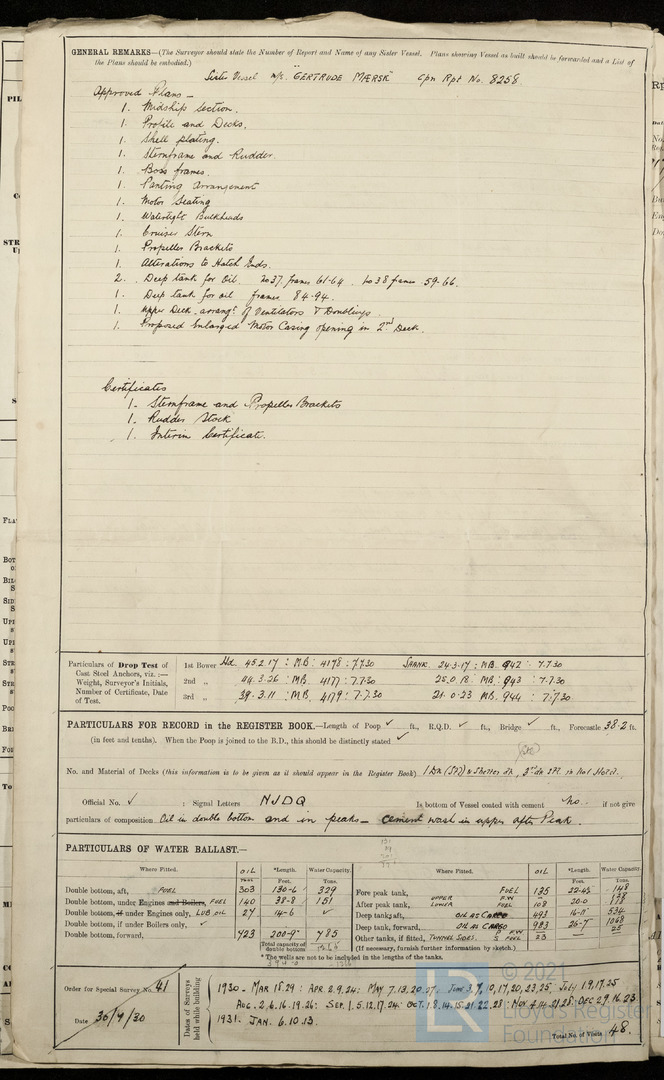 GENERAL REMARKS—(The Surveyor should state the Number of Report and Name of any Sister Vessel. Plans showing Vessel as built should be forwarded and a List of
the Plans should be embodied.)
Sister Vessel m/s. "GERTRUDE MÆRSK" Cpn Rpt No. 8258.
Approved Plans —
1. Midship Section.
1. Profile and Decks.
1. Shell plating.
1. Sternframe and Rudder.
1. Boss frames.
1. Panting arrangement
1. Motor Seating
1. Watertight Bulkheads
1. Cruiser Stern
1. Propeller Brackets
1. Alterations to Hatch Ends.
2. Deep tank for Oil. No 37 frames 61-64. No 38 frames 59-66.
1. Deep tank for oil frames 84-94.
1. Upper Deck. arrangt. of Ventilators & Doublings.
1. Proposed Enlarged Motor Casing opening in 2nd Deck.
Certificates
1. Sternframe and Propeller Brackets
1. Rudder Stock
1. Interim Certificate.
Particulars of Drop Test of
Cast Steel Anchors, viz.:—
Weight, Surveyor's Initials,
Number of Certificate, Date
of Test.
1st Bower Hd. 45 2 17 : M.B : 4178 : 7.7.30 SHANK. 24-3-17 : MB. 942 : 7.7.30
2nd „ 44.3.26 : MB. 4177 : 7.7.30 25.0.18 MB. 943 : 7.7.30
3rd „ 39.3.11 : MB. 4179 : 7.7.30 21.0.23 MB. 944 : 7.7.30
PARTICULARS FOR RECORD in the REGISTER BOOK.—Length of Poop ✓ ft., R.Q.D. ✓ ft., Bridge ✓ ft., Forecastle 38.2 ft.
(in feet and tenths). When the Poop is joined to the B.D., this should be distinctly stated ✓
No. and Material of Decks (this information is to be given as it should appear in the Register Book) 1 Dk (Stl) & Shelter dk, 2nd dk Stl. in No1 Hold.
Official No. ✓ ; Signal Letters NJDQ Is bottom of Vessel coated with cement No. if not give
particulars of composition Oil in double bottom and in peaks — cement wash in upper after Peak.
PARTICULARS OF WATER BALLAST.—
Where Fitted. OIL *Length. Water Capacity. Where Fitted. OIL *Length. Water Capacity
Feet. Tons. Feet. Tons.
Double bottom, aft, FUEL 303 130-6 329
Double bottom, under Engines and Boilers, FUEL 140 38-8 151
Double bottom, if under Engines only, LUB OIL 27 14-6 ✓
Double bottom, if under Boilers only, ✓
Double bottom, forward, 723 200-9 785
Total capacity of double bottom
Fore peak tank, FUEL 135 22-45 148
After peak tank, UPPER F.W LOWER FUEL 108 20-0
Deep tank, aft, OIL AS CARGO 493 16-11 534
Deep tank, forward, OIL AS CARGO 983 26-7 1068
Other tanks, if fitted, TUNNEL SIDES. F.W FUEL 23 25
*The wells are not to be included in the lengths of the tanks.
(If necessary, furnish further information by sketch.)
Order for Special Survey No. 41
Date 30/9/30
Dates of Surveys held while building
1930 - MAR 18.29 : APR 2.9.24 : MAY 7.13.20.27 : June 3.7.10,17,20,23,25. July 1.9,17.25
AUG. 2.6.16.19.26 : SEP. 1.5.12.17.24 : OCT. 1.8.14.15.21.22.28 : NOV 4.14.21.28 : DEC 2.9.16.23
1931. JAN. 6.10.13.
Total No. of Visits 48.
© 2021
LR
Lloyd's Register
Foundation